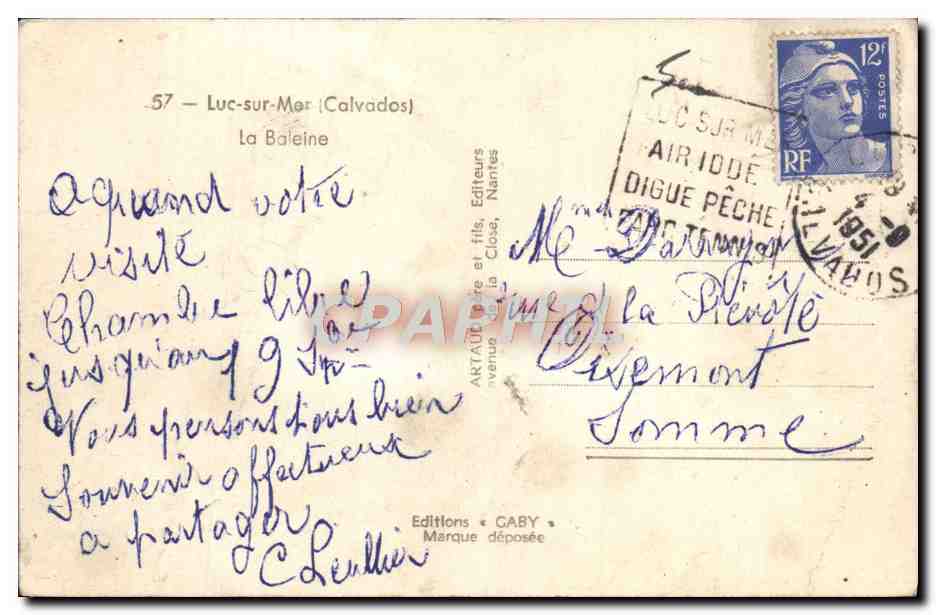 57 – Luc-sur-Mer (Calvados)
La Baleine
a quand votre
visite
Chambe libre
jusqu'au 19
Vous pensons tous bien
Souvenir affectueux
a partager
C Leullier
ARTAUD père et fils, Editeurs
avenue de la Close, Nantes
Editions « GABY »
Marque déposée
KPAPHIL
12F
POSTES
RF
LUC SUR M
AIR IODÉ
DIGUE PÊCHE
PARC TENNIS
4-9
1951
CALVADOS
Mme
rue de la Prévoté
Oisemont
Somme